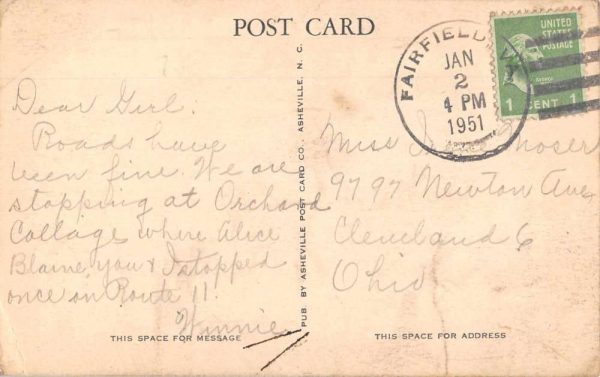 POST CARD
FAIRFIELD, VA.
JAN
2
4 PM
1951
UNITED
STATES
POSTAGE
1 CENT 1
Dear Girl.
Roads have
been fine. We are
stopping at Orchard
Cottage where Alice
Blaine, you & I stopped
once on Route 11.
Winnie
PUB. BY ASHEVILLE POST CARD CO., ASHEVILLE, N. C.
Miss
9797 Newton Ave
Cleveland 6
Ohio
THIS SPACE FOR MESSAGE
THIS SPACE FOR ADDRESS